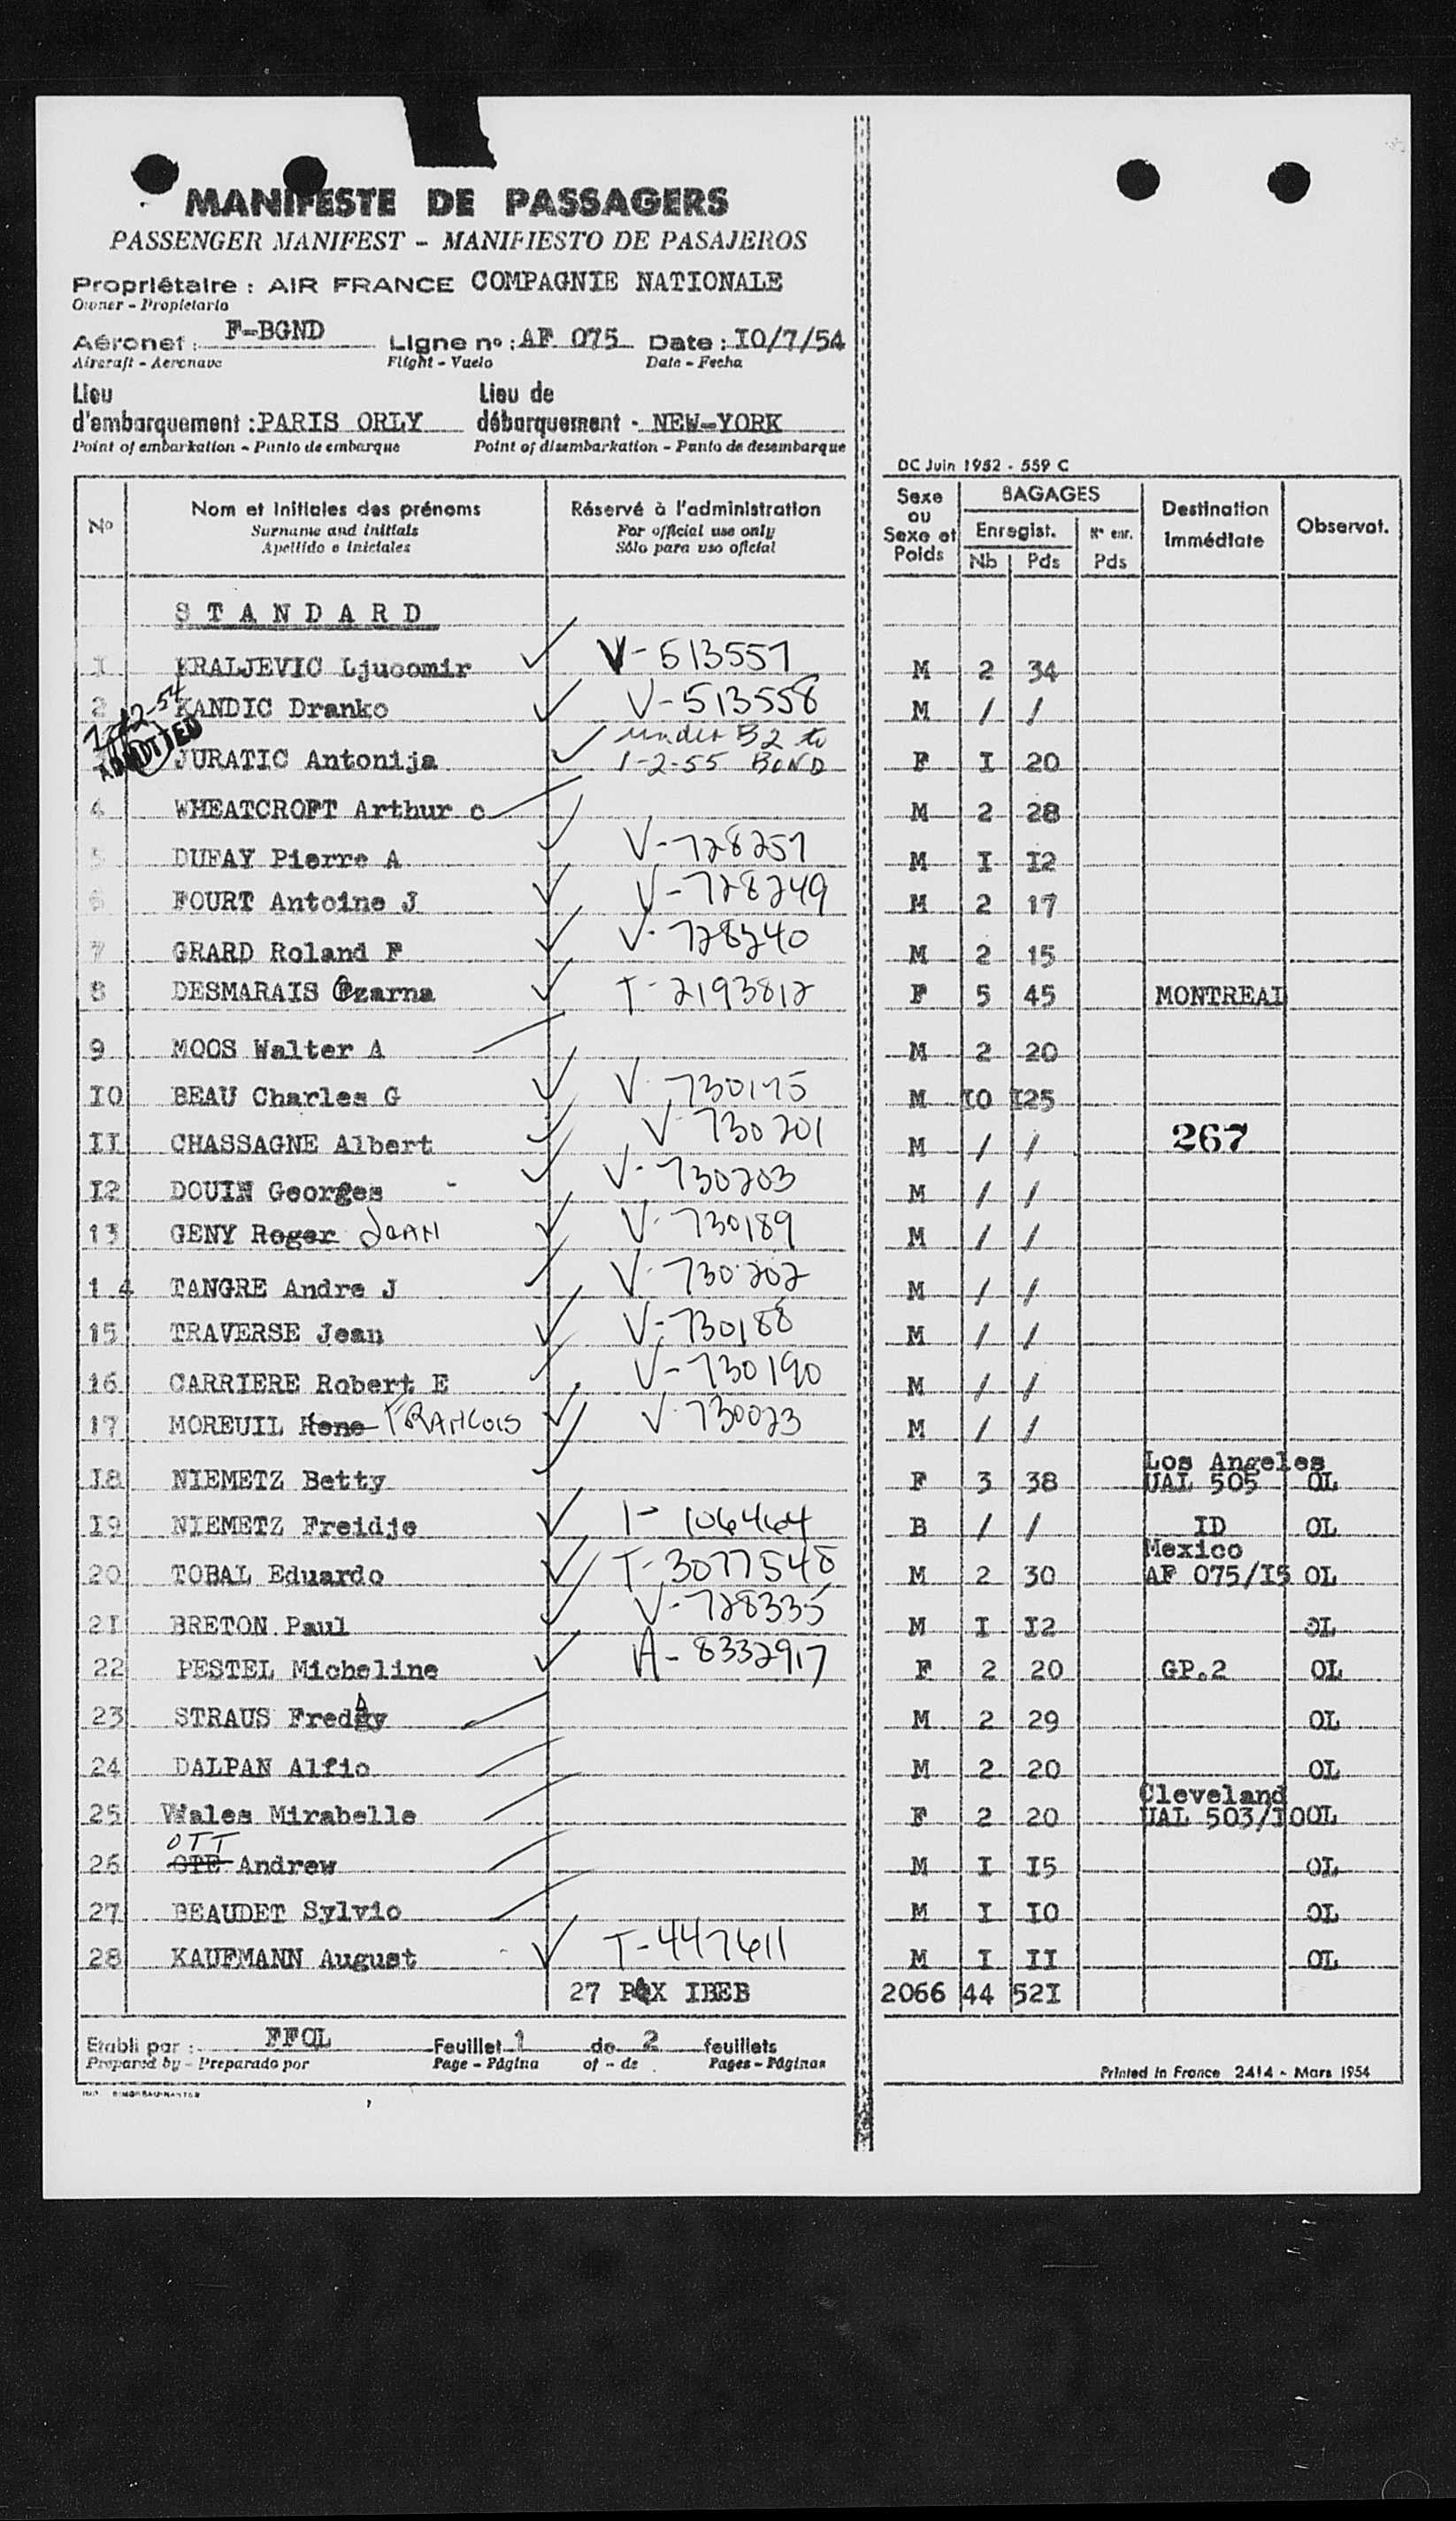 MANIFESTE DE PASSAGERS
PASSENGER MANIFEST - MANIFIESTO DE PASAJEROS
Propriétaire : AIR FRANCE COMPAGNIE NATIONALE
Owner - Propietario
Aéronef : F-BGND Ligne nº : AF 075 Date : I0/7/54
Aircraft - Aeronave Flight - Vuelo Date - Fecha
Lieu d'embarquement : PARIS ORLY Lieu de débarquement - NEW-YORK
Point of embarkation - Punto de embarque Point of disembarkation - Punto de desembarque
DC Juin 1952 - 559 C
Nº Nom et initiales des prénoms Réservé à l'administration Sexe ou Sexe et Poids BAGAGES Destination immédiate Observat.
Surname and initials For official use only Enregist. Nº enr.
Apellido e iniciales Sólo para uso oficial Nb Pds Pds
STANDARD
1 KRALJEVIC Ljucomir V-513557 M 2 34
2 KANDIC Dranko V-513558 M / /
7-12-54 ADMITTED under B2 to
JURATIC Antonija 1-2-55 BOND F I 20
4 WHEATCROFT Arthur c M 2 28
5 DUFAY Pierre A V-728257 M I I2
6 FOURT Antoine J V-728249 M 2 17
7 GRARD Roland F V-728240 M 2 15
8 DESMARAIS Ozarna T-2193812 F 5 45 MONTREAL
9 MOOS Walter A M 2 20
I0 BEAU Charles G V-730175 M I0 I25
II CHASSAGNE Albert V-730201 M / / 267
I2 DOUIN Georges V-730203 M / /
13 GENY Roger JEAN V-730189 M / /
1.4 TANGRE Andre J V-730202 M / /
15 TRAVERSE Jean V-730188 M / /
16 CARRIERE Robert E V-730190 M / /
17 MOREUIL Rene FRANCOIS V-730023 M / /
Los Angeles
18 NIEMETZ Betty F 3 38 UAL 505 OL
I9 NIEMETZ Freidje I-106464 B / / ID OL
Mexico
20 TOBAL Eduardo T-3077548 M 2 30 AF 075/I5 OL
2I BRETON Paul V-728335 M I I2 OL
22 PESTEL Micheline A-8332917 F 2 20 GP.2 OL
23 STRAUS Freddy M 2 29 OL
24 DALPAN Alfio M 2 20 OL
Cleveland
25 Wales Mirabelle F 2 20 UAL 503/I0 OL
OTT
26 OTE Andrew M I I5 OL
27 BEAUDET Sylvio M I I0 OL
28 KAUFMANN August T-447611 M I II OL
27 PAX IBEB 2066 44 52I
Etabli par : FFOL Feuillet 1 de 2 feuillets
Prepared by - Preparado por Page - Página of - de Pages - Páginas
Printed in France 2414 - Mars 1954